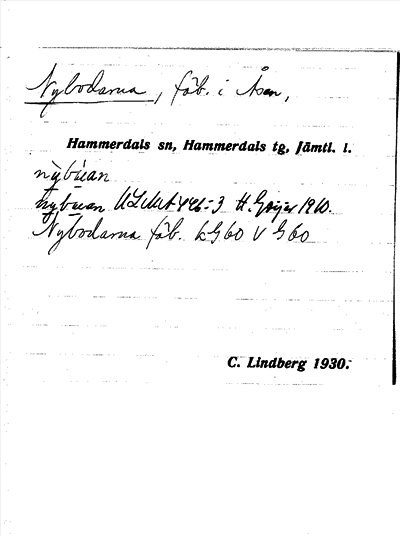 Nybodarna, fäb. i Åsen,
Hammerdals sn, Hammerdals tg, Jämtl. l.
nỳbúan
nybuan ULMA 446:3 H. Geijer 1910.
Nybodarna fäb. LG60 V G60
C. Lindberg 1930.